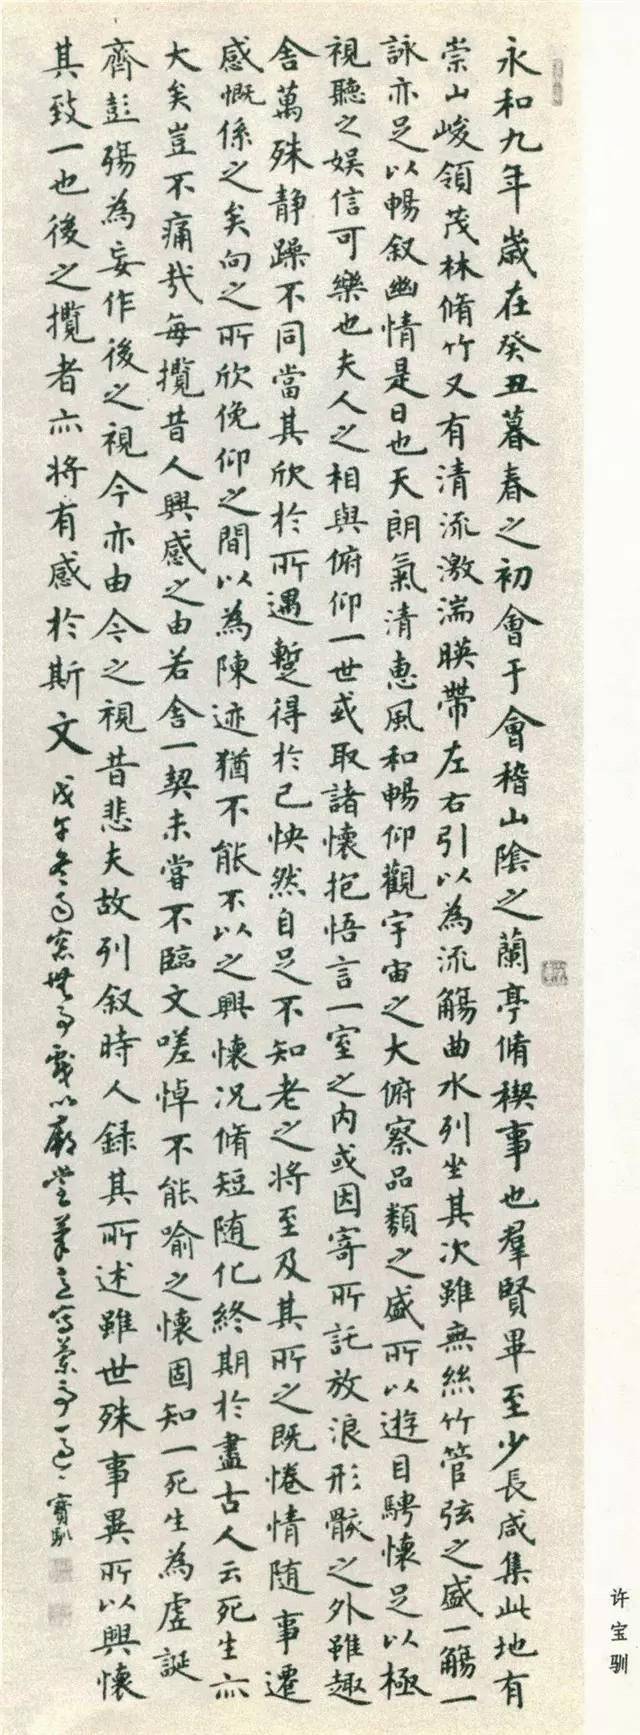 永和九年歲在癸丑暮春之初會于會稽山陰之蘭亭脩稧事也羣賢畢至少長咸集此地有
崇山峻領茂林脩竹又有清流激湍暎帶左右引以為流觴曲水列坐其次雖無絲竹管弦之盛一觴一
詠亦足以暢叙幽情是日也天朗氣清惠風和暢仰觀宇宙之大俯察品類之盛所以遊目騁懷足以極
視聽之娛信可樂也夫人之相與俯仰一世或取諸懷抱悟言一室之内或因寄所託放浪形骸之外雖趣
舍萬殊静躁不同當其欣於所遇蹔得於己怏然自足不知老之將至及其所之既惓情随事遷
感慨係之矣向之所欣俛仰之間以為陳迹猶不能不以之興懷况脩短随化終期於盡古人云死生亦
大矣豈不痛哉每攬昔人興感之由若合一契未嘗不臨文嗟悼不能喻之懷固知一死生為虛誕
齊彭殤為妄作後之視今亦由今之視昔悲夫故列叙時人錄其所述雖世殊事異所以興懷
其致一也後之攬者亦將有感於斯文 戊午冬日窓無事戲以廟堂筆意寫蘭亭一過 寶馴
许宝驯